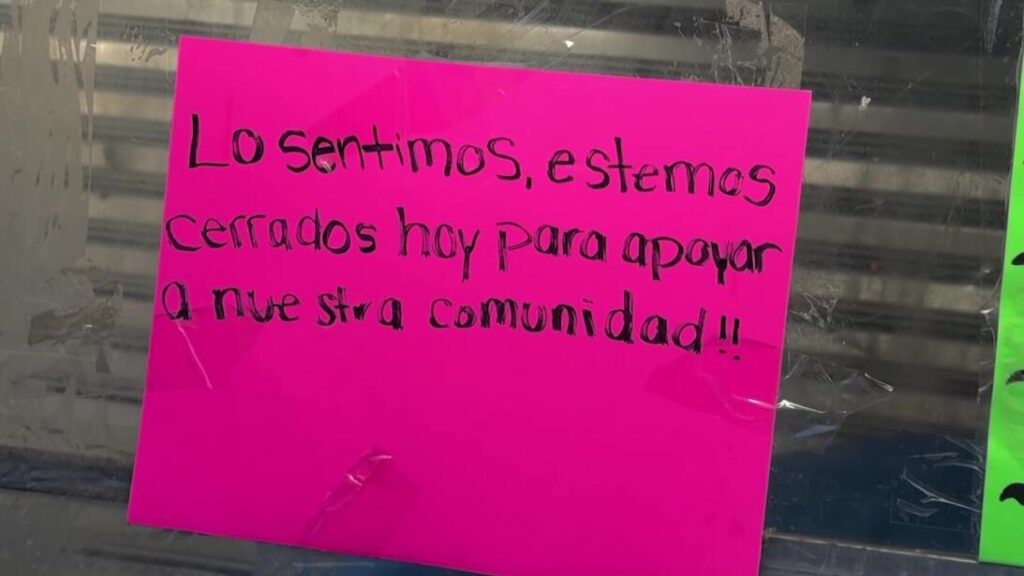 Lo sentimos, estemos
cerrados hoy para apoyar
a nuestra comunidad!!